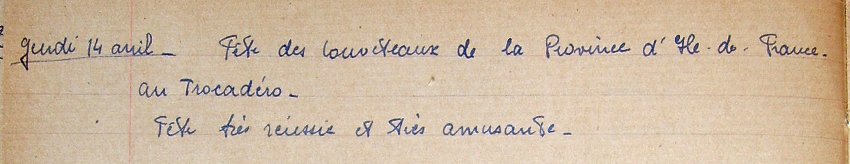 Jeudi 14 avril _ Fête des louveteaux de la Province d'Ile-de-France.
au Trocadéro _
Fête très réussie et très amusante _